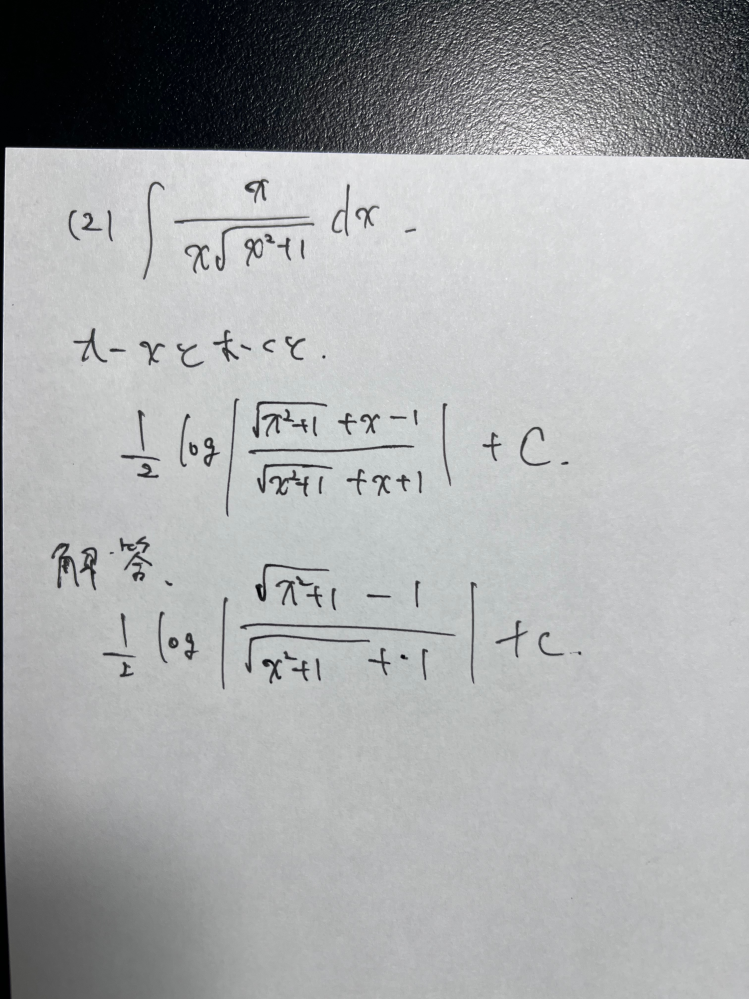 (2) ∫ x / x√(x²+1) dx.
t-xとおくと.
1/2 log | (√(x²+1) + x - 1) / (√(x²+1) + x + 1) | + C.
解答、
1/2 log | (√(x²+1) - 1) / (√(x²+1) + 1) | + C.